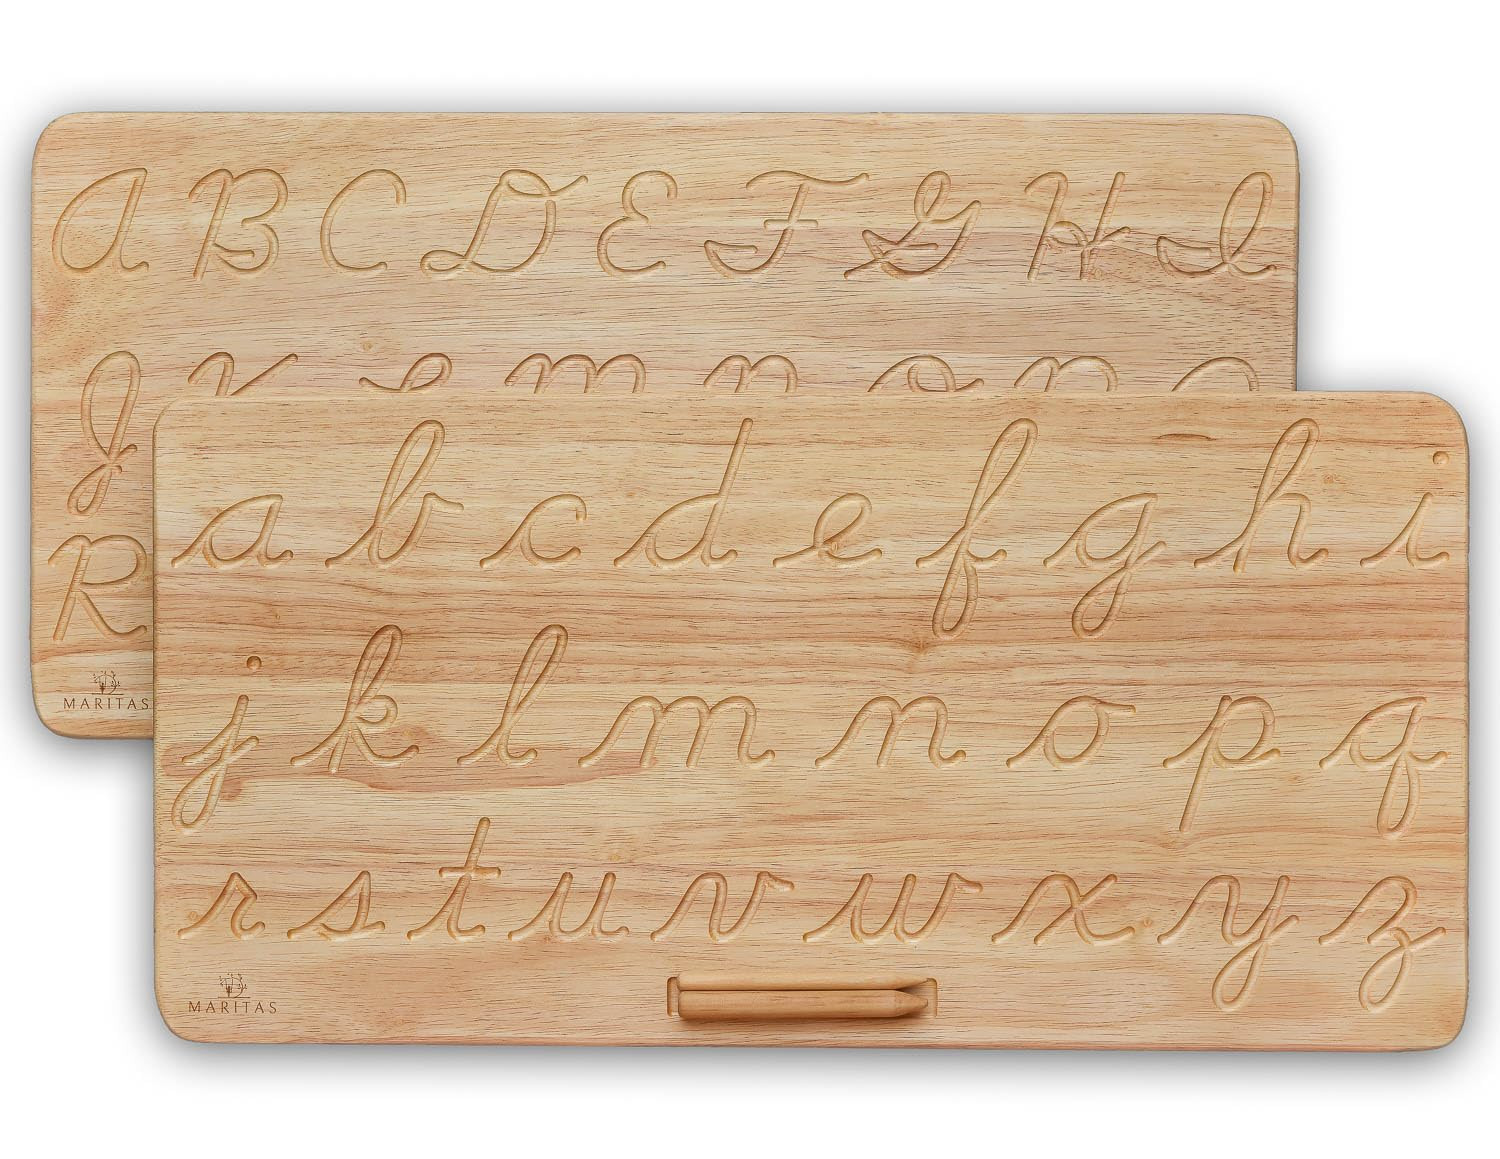 A B C D E F G H I
J K L M N O P Q
R
MARITAS
a b c d e f g h i
j k l m n o p q
r s t u v w x y z
MARITAS